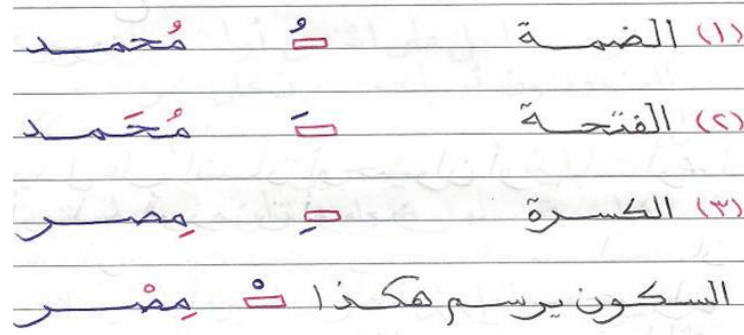 (١) الضمة ـُ مُحمد
(٢) الفتحة ـَ مُحَمد
(٣) الكسرة ـِ مِصر
السكون يرسم هكذا ـْ مِصْر